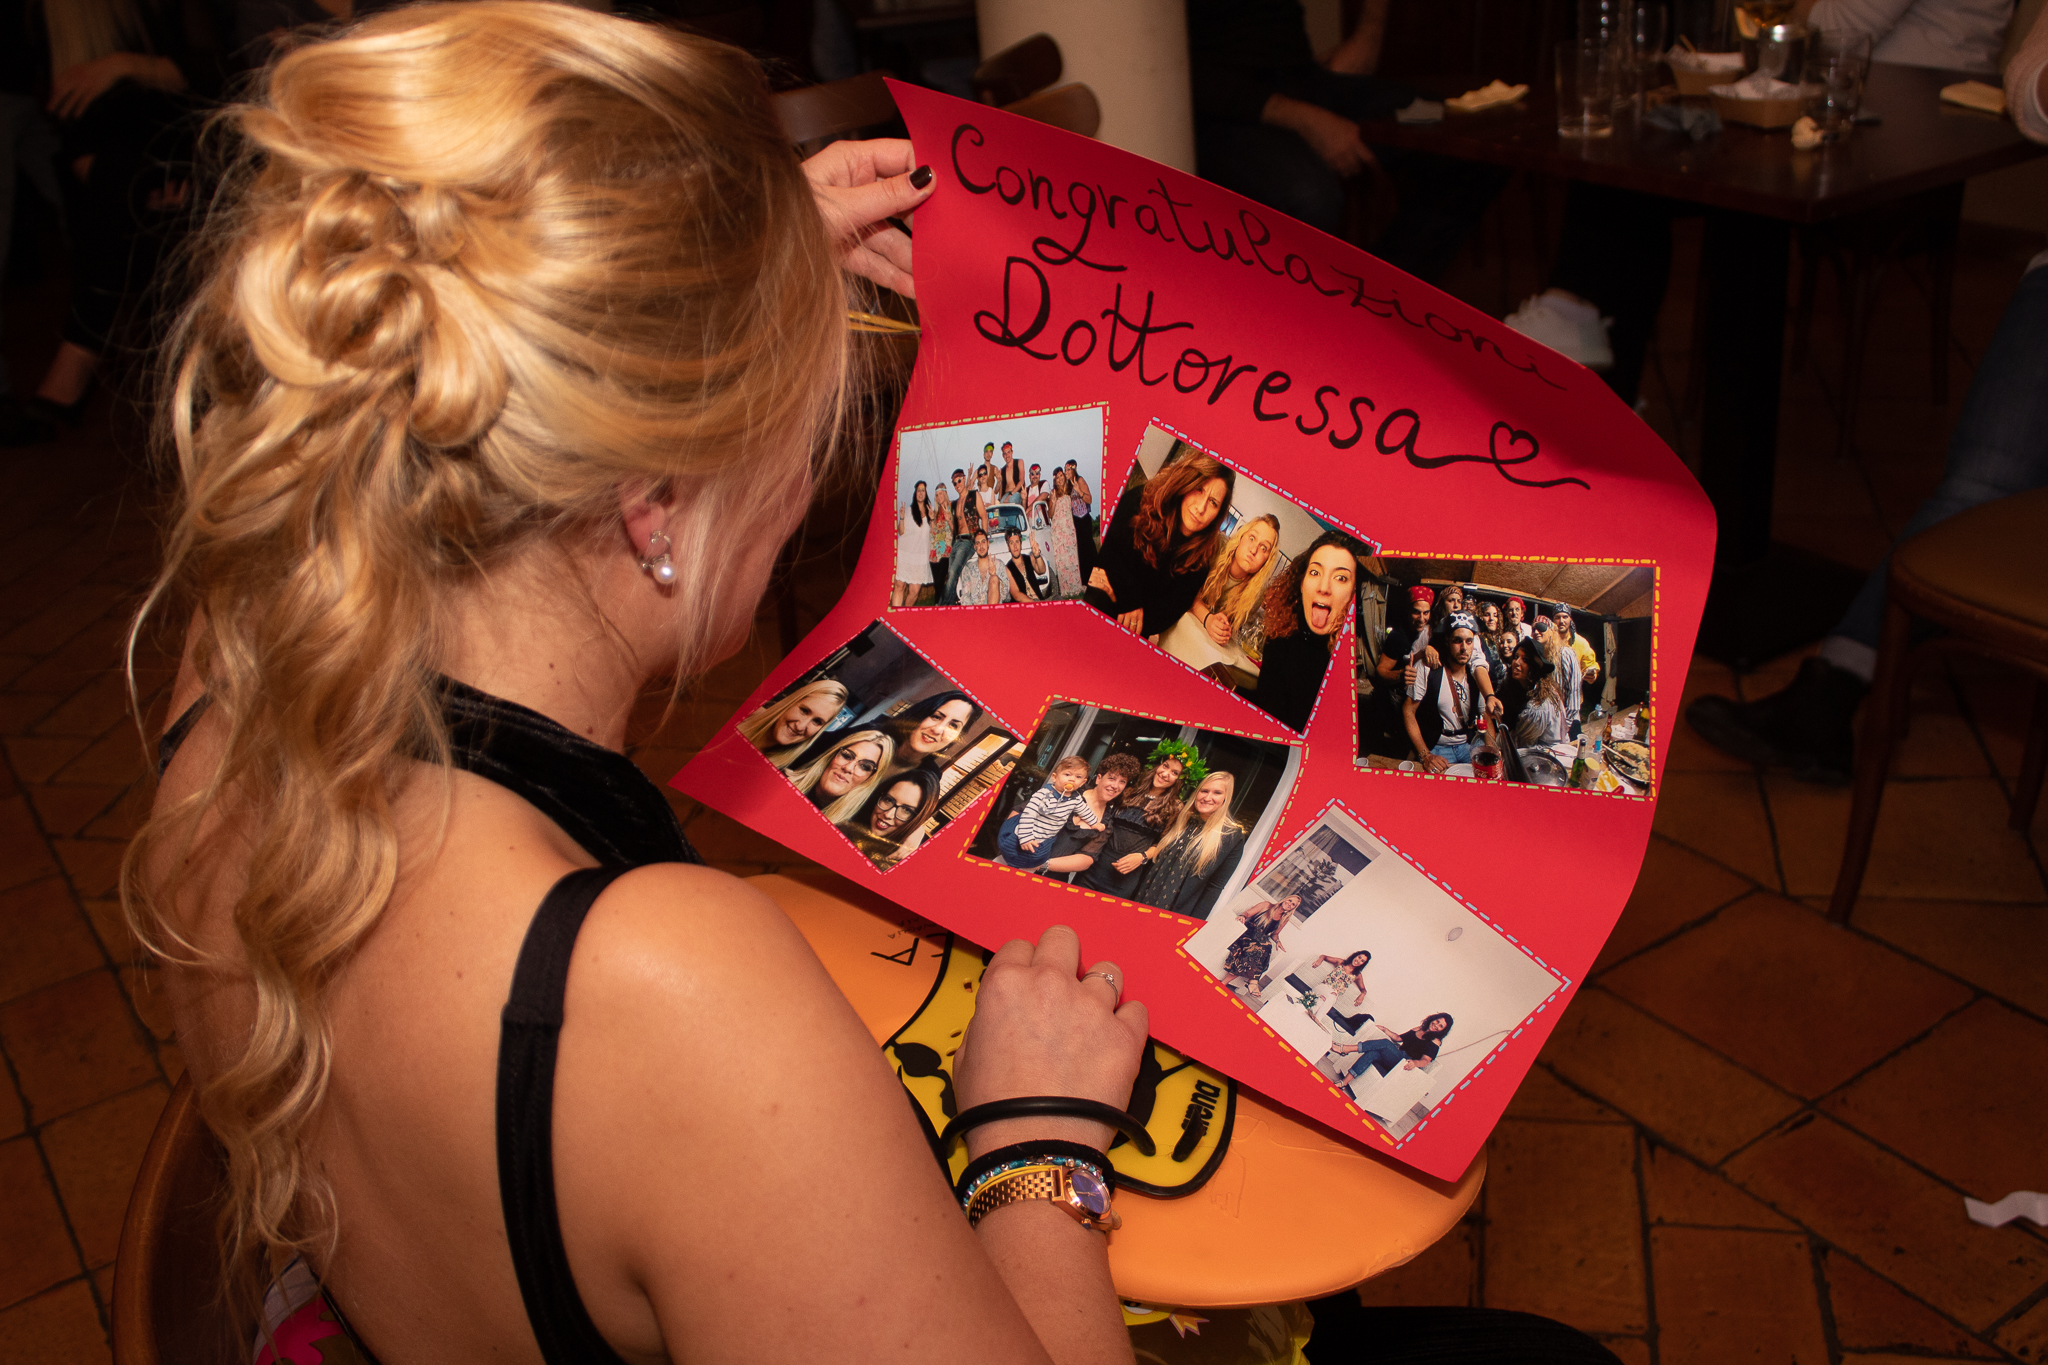 Congratulazioni
Dottoressa
arena